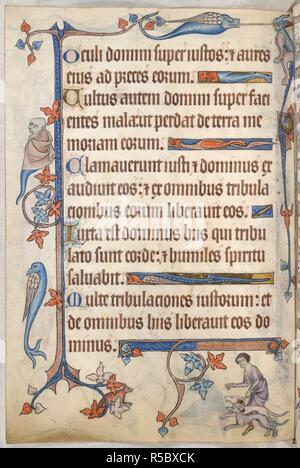 Oculi domini super iustos: ⁊ aures
eius ad preces eorum.
Vultus autem domini super faci
entes mala: ut perdat de terra me
moriam eorum.
Clamauerunt iusti ⁊ dominus ex
audiuit eos: ⁊ ex omnibus tribula
cionibus eorum liberauit eos.
Iuxta est dominus hiis qui tribu
lato sunt corde: ⁊ humiles spiritu
saluabit.
Multe tribulaciones iustorum: et
de omnibus hiis liberauit eos do
minus.
alamy
Image ID: R5BXCK
www.alamy.com